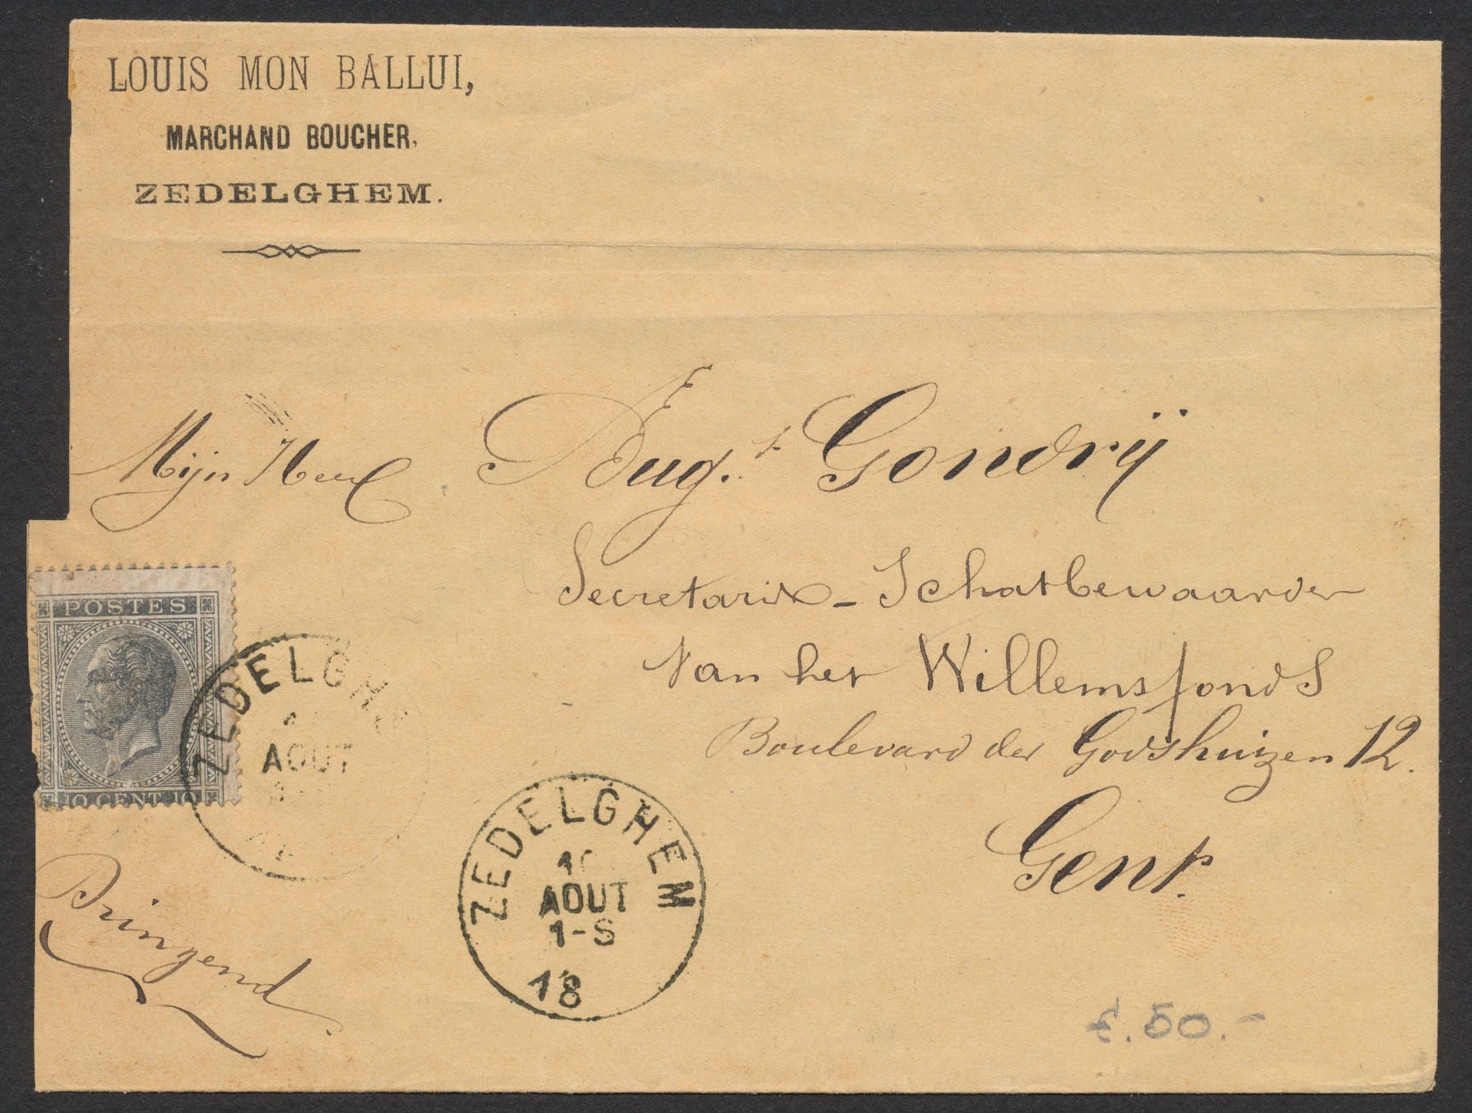 LOUIS MON BALLUI,
MARCHAND BOUCHER,
ZEDELGHEM.
Mijn Heer Aug.t Gondrÿ
Secretaris - Schatbewaarder
Van het Willemsfonds
Boulevard der Godshuizen 12.
Gent.
POSTES
10 CENT. 10
ZEDELGHE
AOUT
ZEDELGHEM
AOUT
1-S
18
Dringend
£.50.-